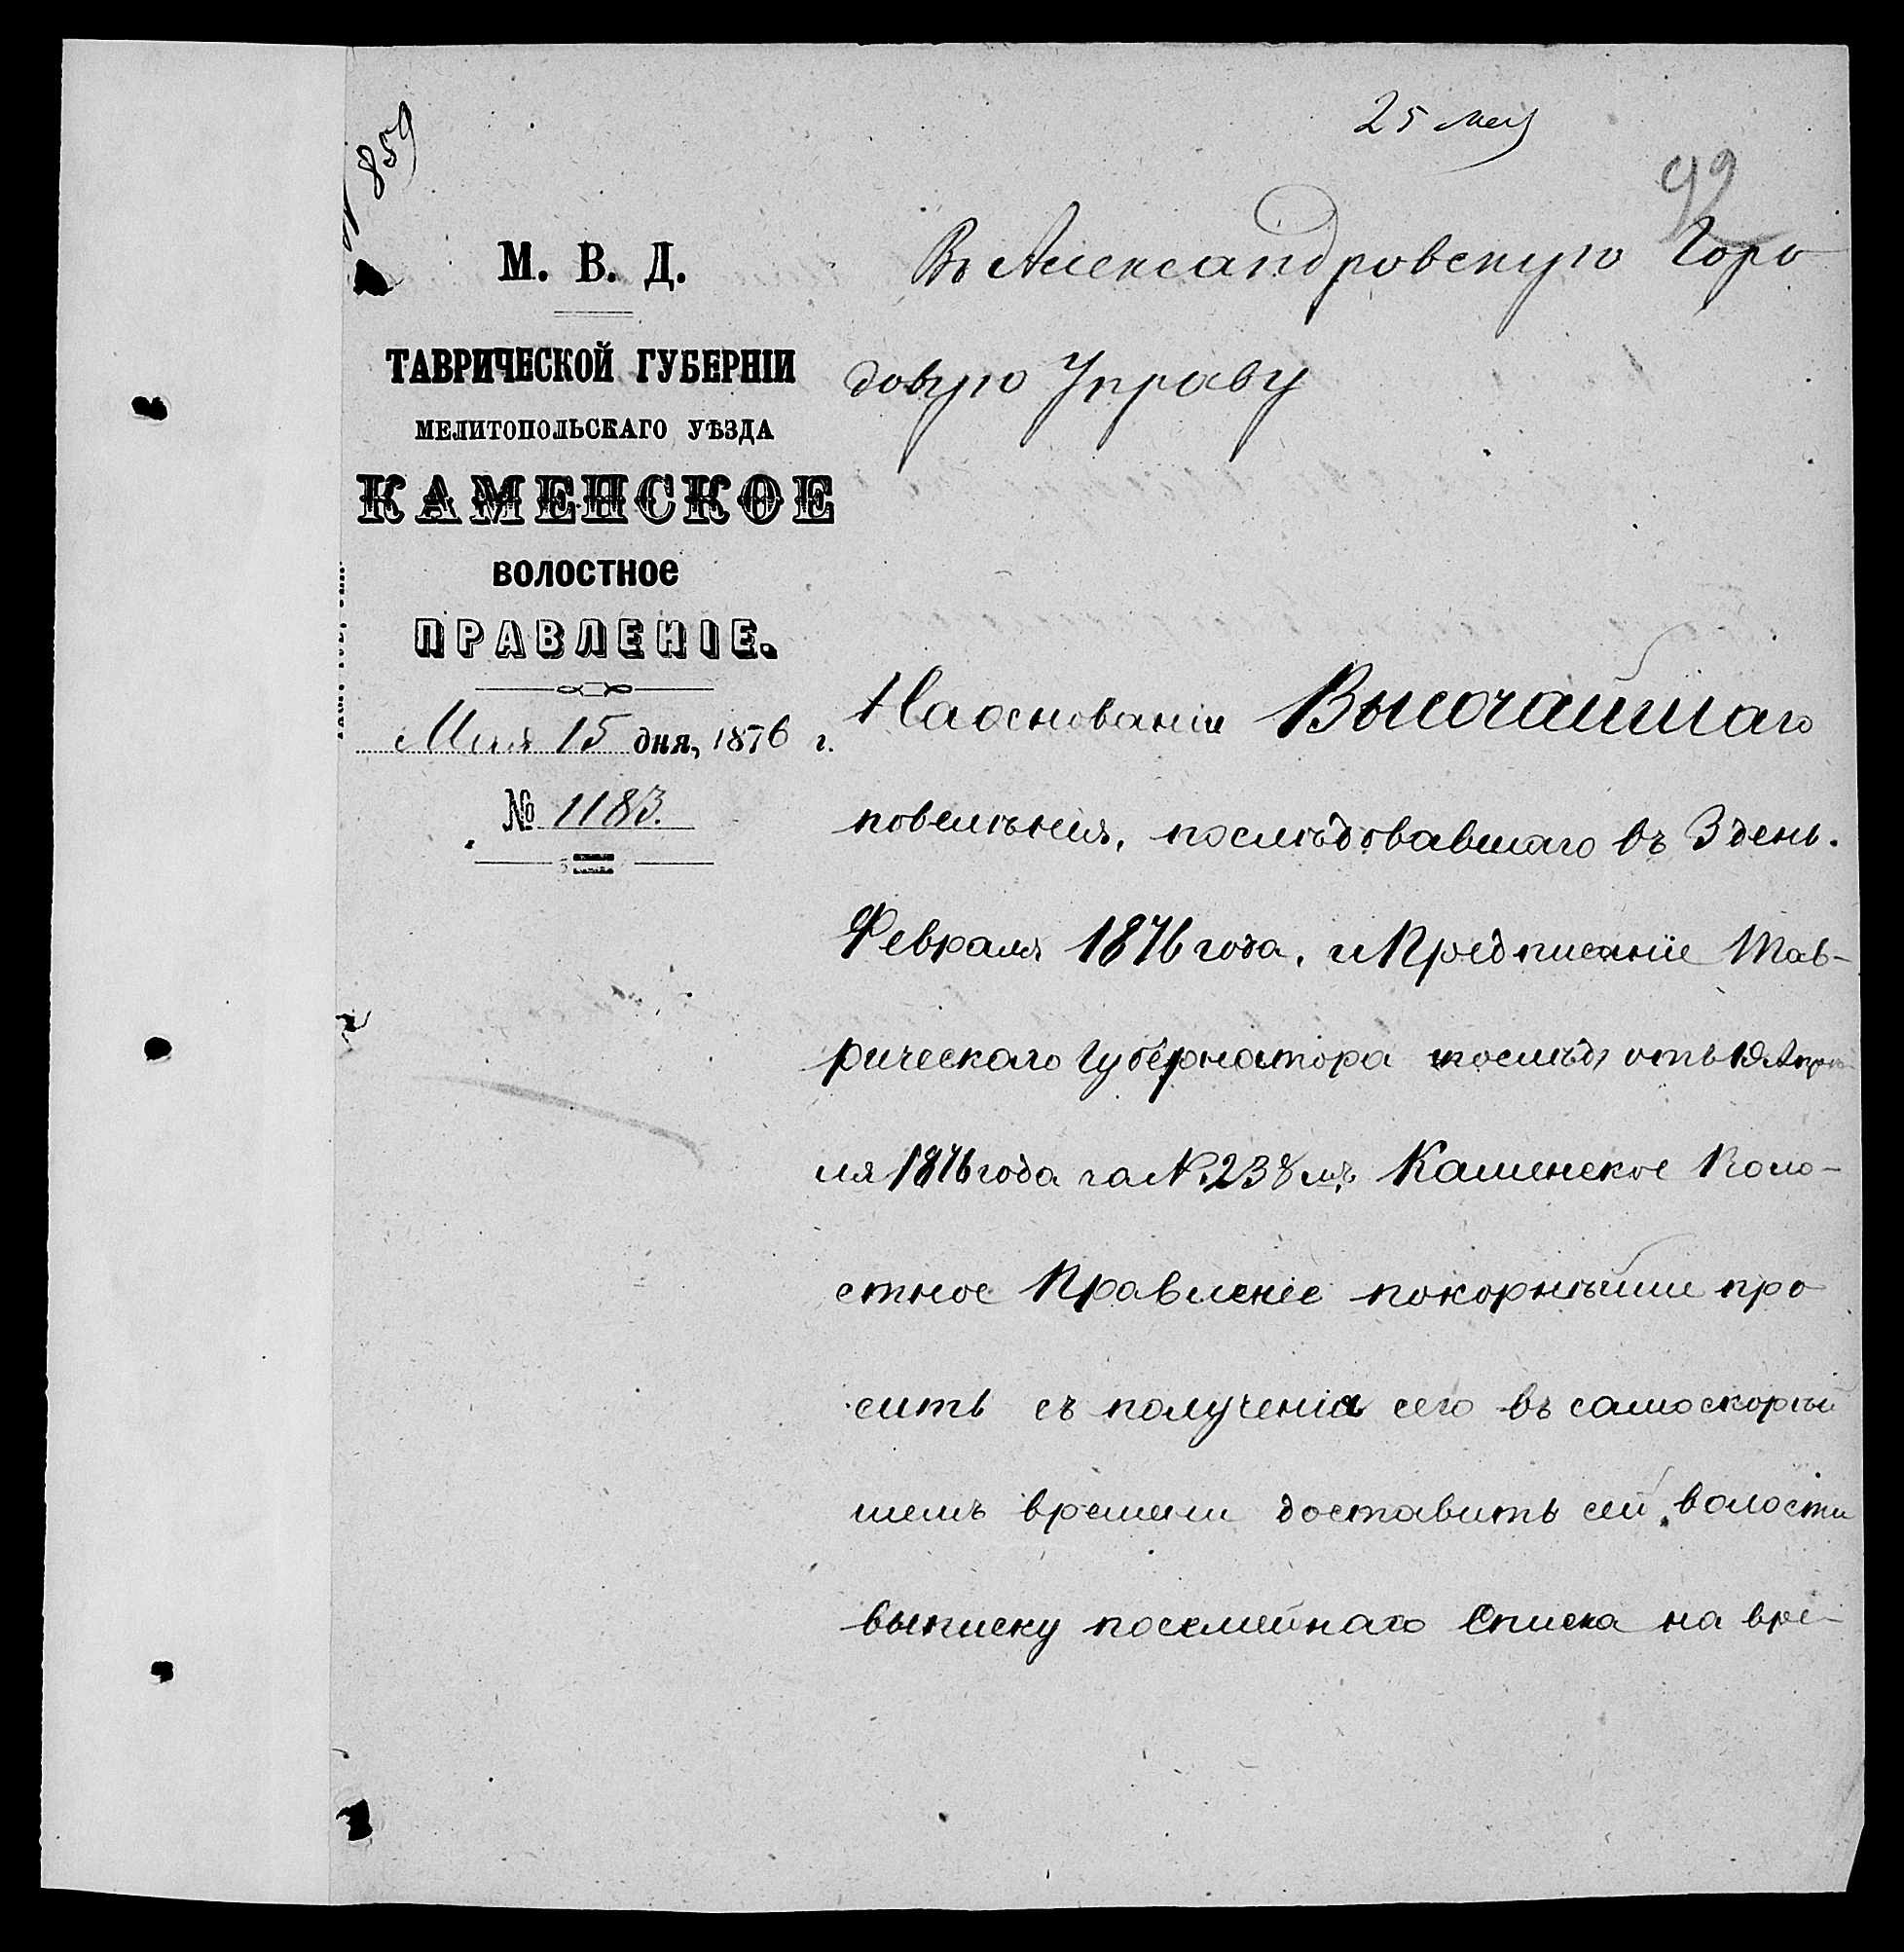 859
25 мая
92
М. В. Д.
ТАВРИЧЕСКОЙ ГУБЕРНІИ
МЕЛИТОПОЛЬСКАГО УѢЗДА
КАМЕНСКОЕ
ВОЛОСТНОЕ
ПРАВЛЕНІЕ.
Мая 15 дня, 1876 г.
№ 1183.
Въ Александровскую Горо
довую Управу
На основаніи Высочайшаго
повелѣнія, послѣдовавшаго въ 3 день.
Февраля 1876 года, и Предписаніе Тав-
рическаго Губернатора послѣд, отъ Апре
ля 1876 года за №. 238 мъ. Каменское Воло-
стное Правленіе покорнѣйши про
ситъ съ полученія сего въ самоскорѣй
шемъ времени доставить сей волости
выписку посемейнаго Списка на вре-